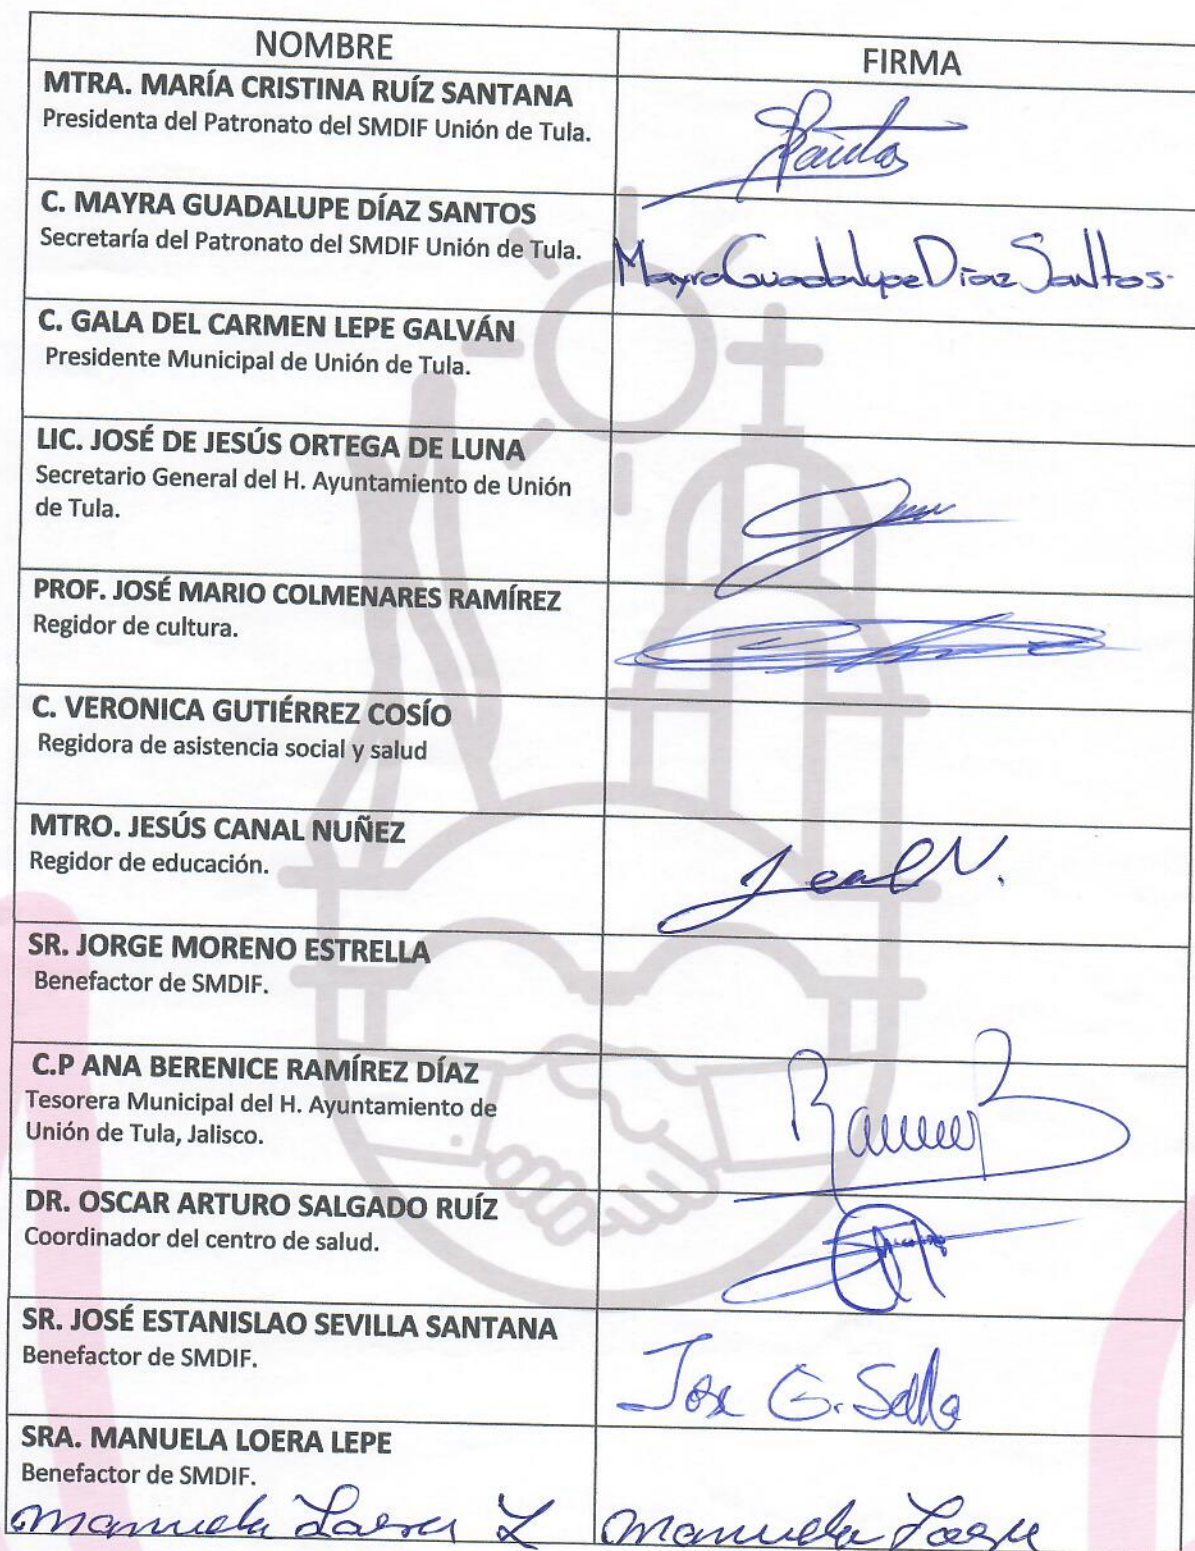 NOMBRE
FIRMA
MTRA. MARÍA CRISTINA RUÍZ SANTANA
Presidenta del Patronato del SMDIF Unión de Tula.
C. MAYRA GUADALUPE DÍAZ SANTOS
Secretaría del Patronato del SMDIF Unión de Tula.
Mayra Guadalupe Díaz Santos
C. GALA DEL CARMEN LEPE GALVÁN
Presidente Municipal de Unión de Tula.
LIC. JOSÉ DE JESÚS ORTEGA DE LUNA
Secretario General del H. Ayuntamiento de Unión
de Tula.
PROF. JOSÉ MARIO COLMENARES RAMÍREZ
Regidor de cultura.
C. VERONICA GUTIÉRREZ COSÍO
Regidora de asistencia social y salud
MTRO. JESÚS CANAL NUÑEZ
Regidor de educación.
SR. JORGE MORENO ESTRELLA
Benefactor de SMDIF.
C.P ANA BERENICE RAMÍREZ DÍAZ
Tesorera Municipal del H. Ayuntamiento de
Unión de Tula, Jalisco.
DR. OSCAR ARTURO SALGADO RUÍZ
Coordinador del centro de salud.
SR. JOSÉ ESTANISLAO SEVILLA SANTANA
Benefactor de SMDIF.
Jose
SRA. MANUELA LOERA LEPE
Benefactor de SMDIF.
Manuela Loera L
Manuela Loera